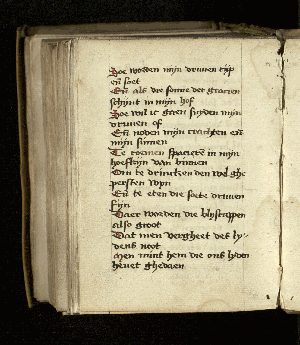 Soe worden mijn druven rijp
en soet
Eñ als die sonne der gracien
schijnt in mijn hof
Soe wil ic gaen snyden mijn
druven of
Eñ noden mijn crachten eñ
mijn sinnen
Te comen spacieren in mijn
hoefkijn van binnen
Om te drincken den wel ghe
persten wyn
Eñ te eten die soete druven
fijn
Daer worden die blijscappen
also groot
Dat men vergheet des ly
dens noot
Men mint hem die ons lyden
hevet ghedaen